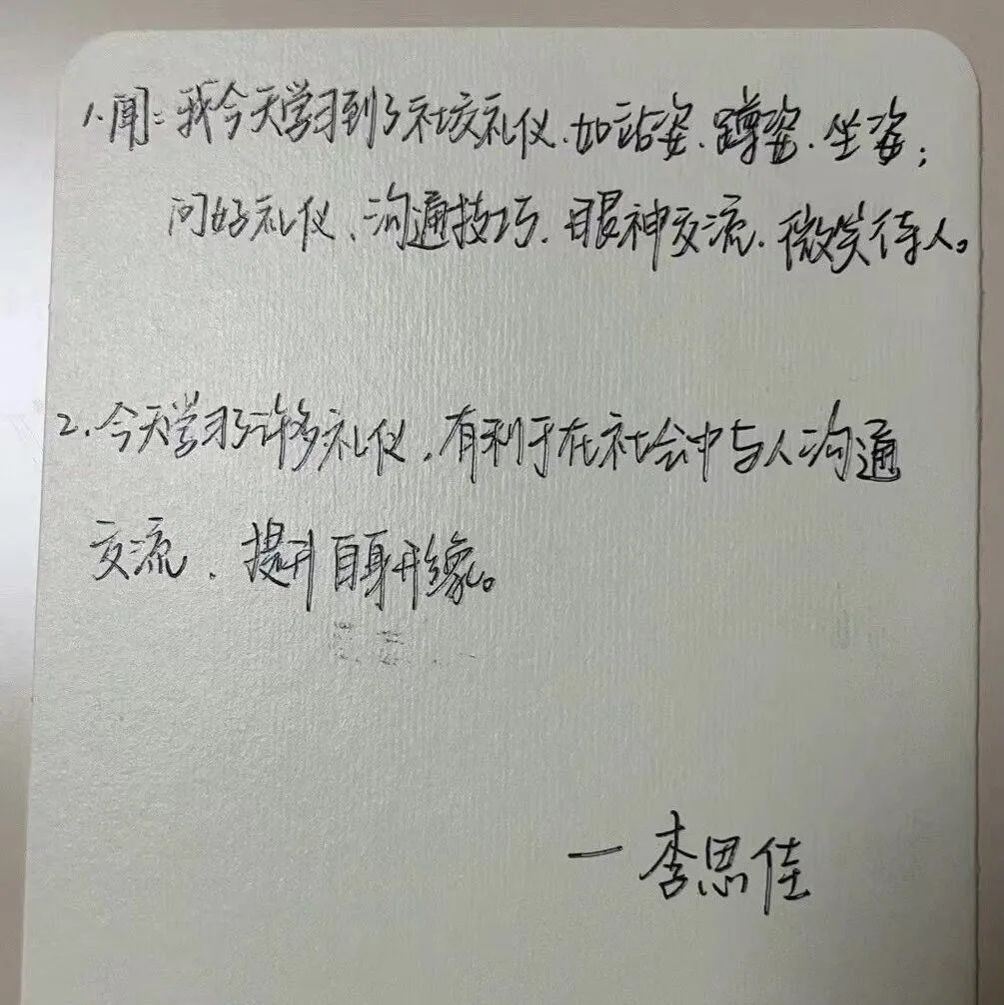 1.闻：我今天学习到了社交礼仪、如站姿、蹲姿、坐姿；
问好礼仪、沟通技巧、眼神交流、微笑待人。
2.今天学习了许多礼仪，有利于在社会中与人沟通
交流、提升自身形象。
—李思佳